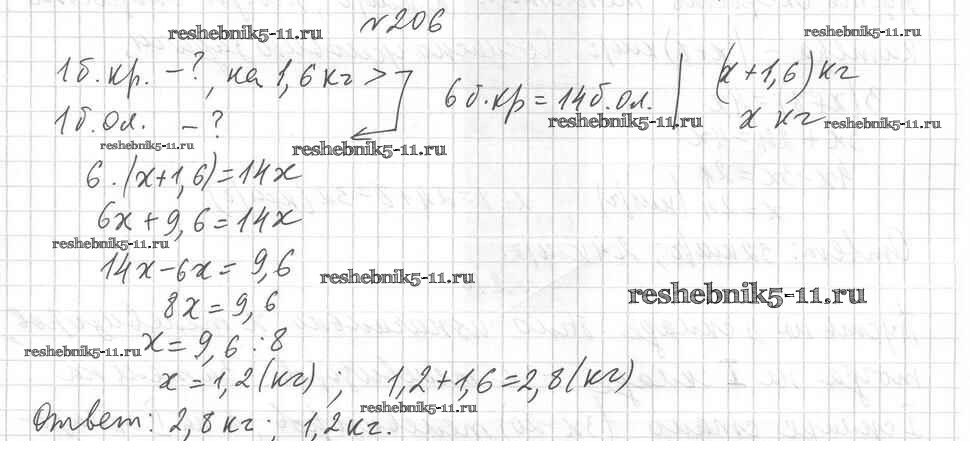 №206
reshebnik5-11.ru
reshebnik5-11.ru
1б.кр. – ?, на 1,6 кг >
6 б.кр = 14 б.ол.
(x+1,6) кг
1б.ол. – ?
x кг
reshebnik5-11.ru
reshebnik5-11.ru
reshebnik5-11.ru
reshebnik5-11.ru
6·(x+1,6)=14x
6x+9,6=14x
reshebnik5-11.ru
14x-6x=9,6
reshebnik5-11.ru
8x=9,6
reshebnik5-11.ru
x=9,6:8
reshebnik5-11.ru
x=1,2(кг); 1,2+1,6=2,8(кг)
reshebnik5-11.ru
Ответ: 2,8 кг; 1,2 кг.